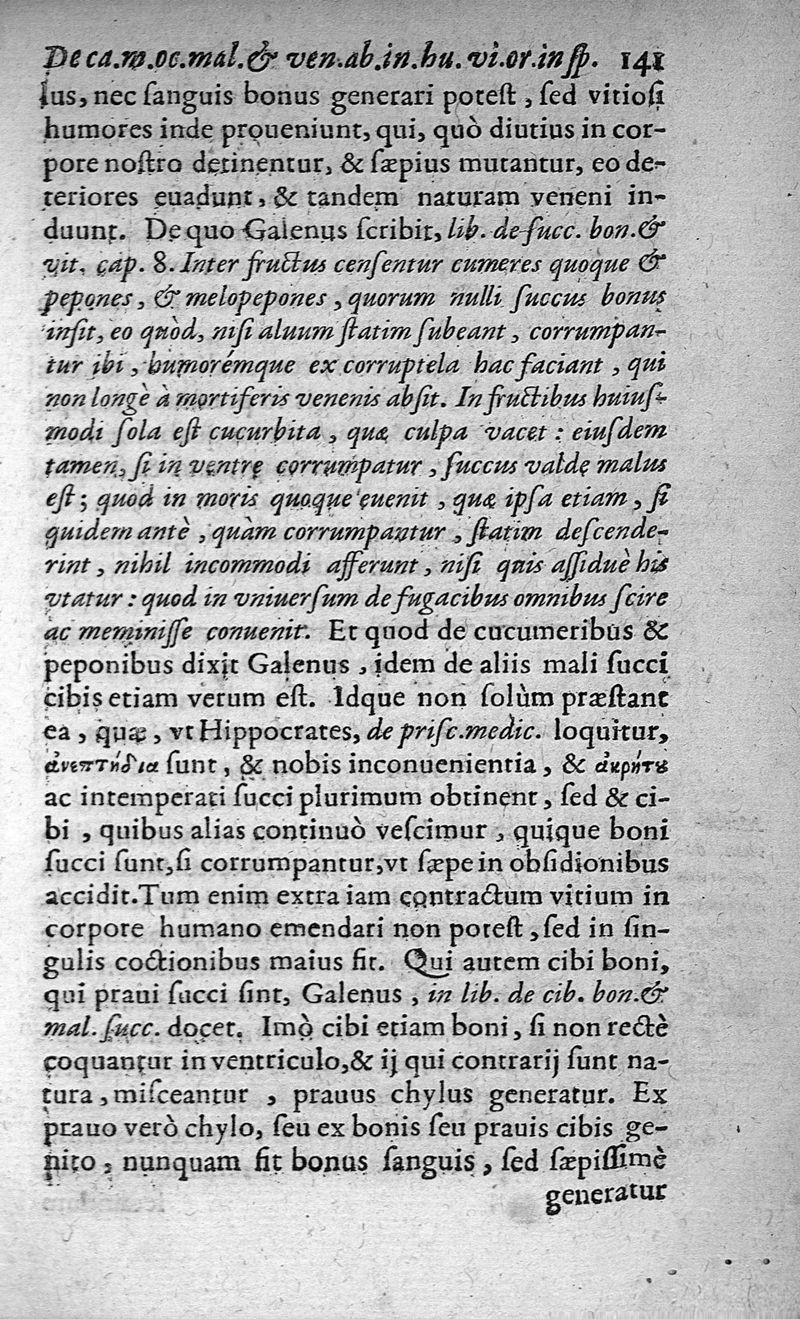 De ca.m.oc.mal.& ven.ab.in.hu.vi.or.insp. 141
ius, nec ſanguis bonus generari poteſt, ſed vitioſi
humores inde proueniunt, qui, quò diutius in cor-
pore noſtro detinentur, & ſæpius mutantur, eo de-
teriores euadunt, & tandem naturam veneni in-
duunt. De quo Galenus ſcribit, lib. de ſucc. bon.&
vit. cap. 8. Inter fructus cenſentur cumeres quoque &
pepones, & melopepones, quorum nulli ſuccus bonus
inſit, eo quòd, niſi aluum ſtatim ſubeant, corrumpan-
tur ibi, humorémque ex corruptela hac faciant, qui
non longè à mortiferis venenis abſit. In fructibus huiuſ-
modi ſola eſt cucurbita, quæ culpa vacet: eiuſdem
tamen, ſi in ventre corrumpatur, ſuccus valde malus
eſt; quod in moris quoque euenit, quæ ipſa etiam, ſi
quidem antè, quàm corrumpantur, ſtatim deſcende-
rint, nihil incommodi afferunt, niſi quis aſſiduè his
vtatur: quod in vniuerſum de fugacibus omnibus ſcire
ac meminiſſe conuenit. Et quod de cucumeribus &
peponibus dixit Galenus, idem de aliis mali ſucci
cibis etiam verum eſt. Idque non ſolùm præſtant
ea, quæ, vt Hippocrates, de priſc.medic. loquitur,
ἀνεπτήδια ſunt, & nobis inconuenientia, & ἀκρήτȣ
ac intemperati ſucci plurimum obtinent, ſed & ci-
bi, quibus alias continuò veſcimur, quique boni
ſucci ſunt, ſi corrumpantur, vt ſæpe in obſidionibus
accidit. Tum enim extra iam contractum vitium in
corpore humano emendari non poteſt, ſed in ſin-
gulis coctionibus maius fit. Qui autem cibi boni,
qui praui ſucci ſint, Galenus, in lib. de cib. bon.&
mal. ſucc. docet. Imò cibi etiam boni, ſi non rectè
coquantur in ventriculo, & ij qui contrarij ſunt na-
tura, miſceantur, prauus chylus generatur. Ex
prauo verò chylo, ſeu ex bonis ſeu prauis cibis ge-
nito, nunquam fit bonus ſanguis, ſed ſæpiſſimè
generatur